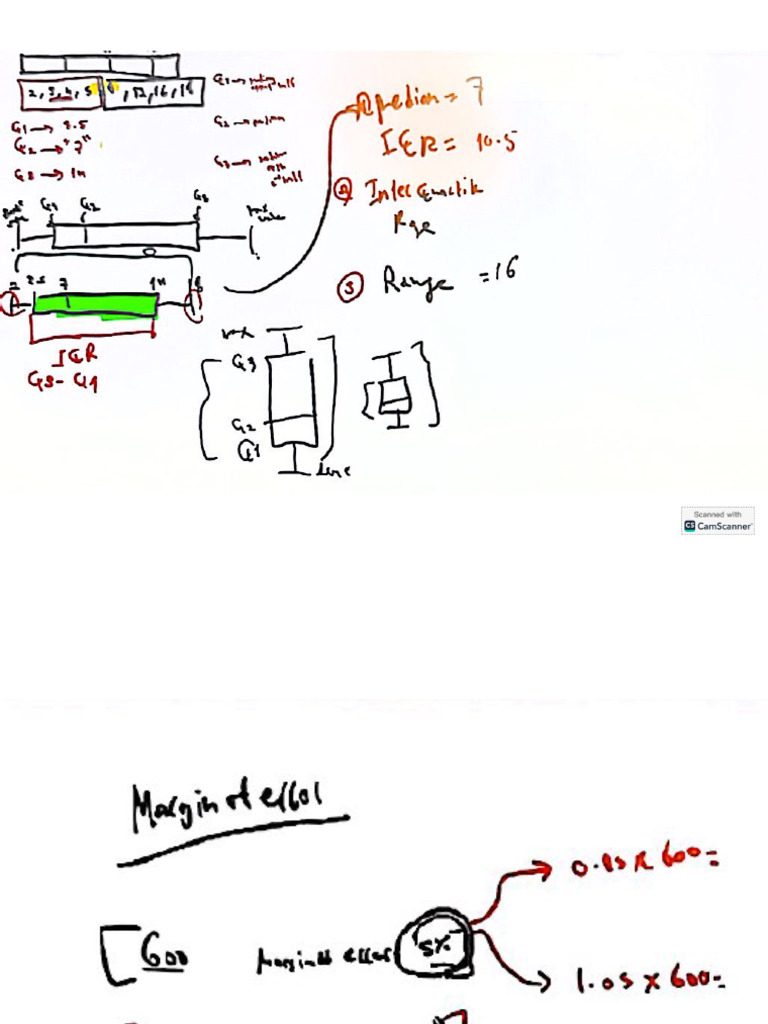 2, 3, 4, 5 8, 12, 16, 18
Q1 → 3.5
Q2 → "7"
Q3 → 14
Q2 → median
Q1 Q2 Q3
7 14
IQR
Q3 - Q1
① Median = 7
IQR = 10.5
② Inter Quartile
Rge
③ Range = 16
max
Q3
Q2
Q1
Scanned with
CS CamScanner
Margin of error
600 Margin of error 5%
0.95 x 600 =
1.05 x 600 =